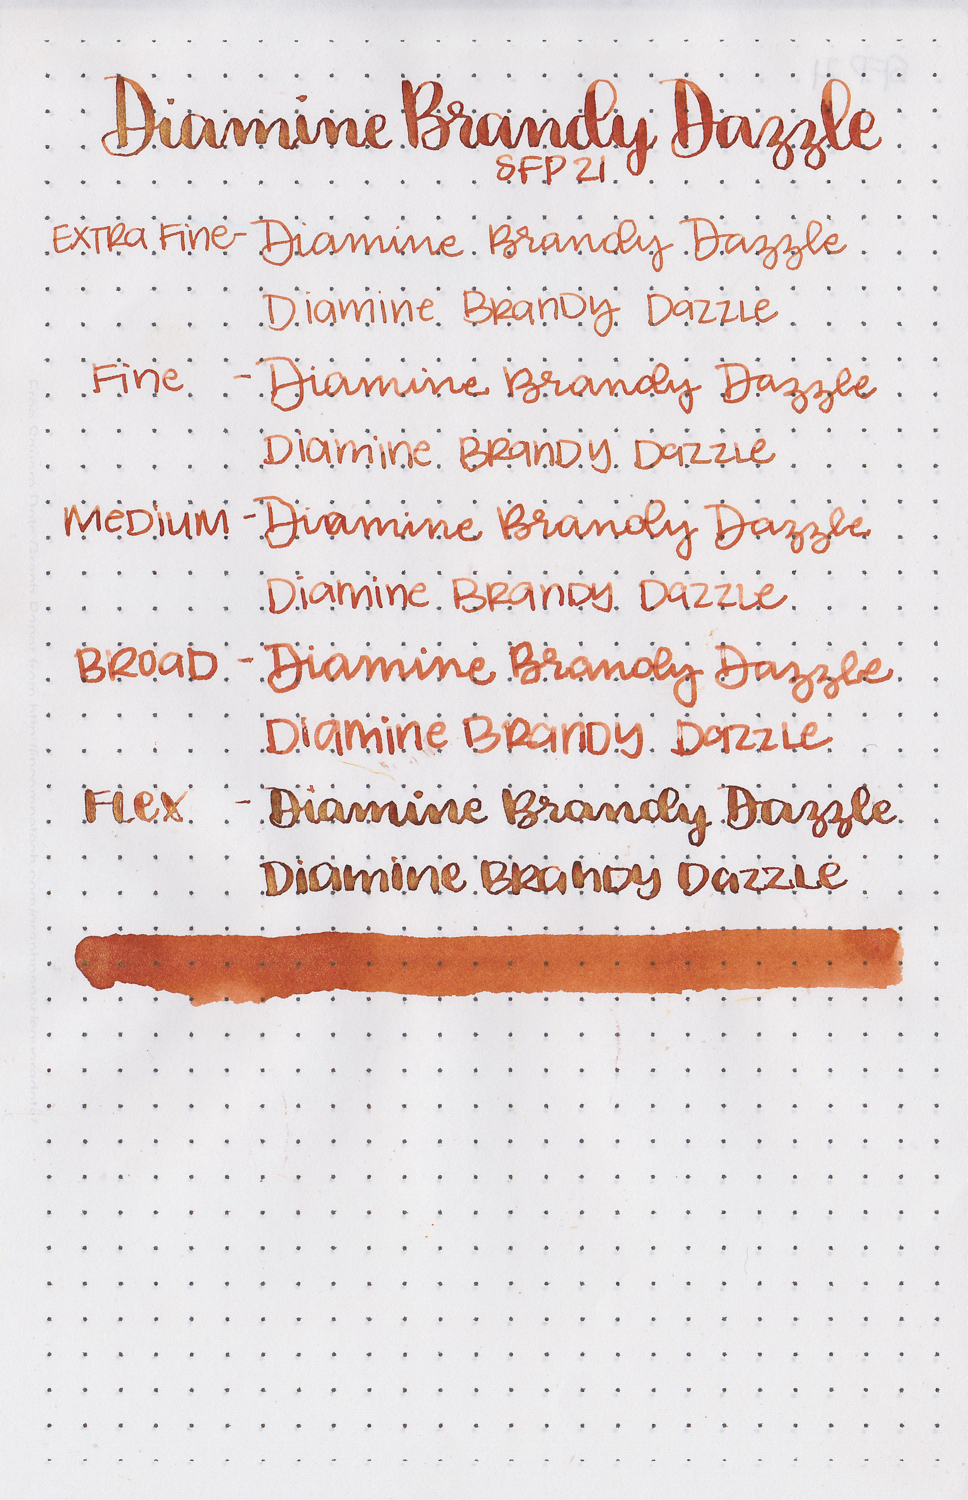 Diamine Brandy Dazzle
SFP 21
Extra Fine - Diamine Brandy Dazzle
Diamine Brandy Dazzle
Fine - Diamine Brandy Dazzle
Diamine Brandy Dazzle
Medium - Diamine Brandy Dazzle
Diamine Brandy Dazzle
Broad - Diamine Brandy Dazzle
Diamine Brandy Dazzle
Flex - Diamine Brandy Dazzle
Diamine Brandy Dazzle